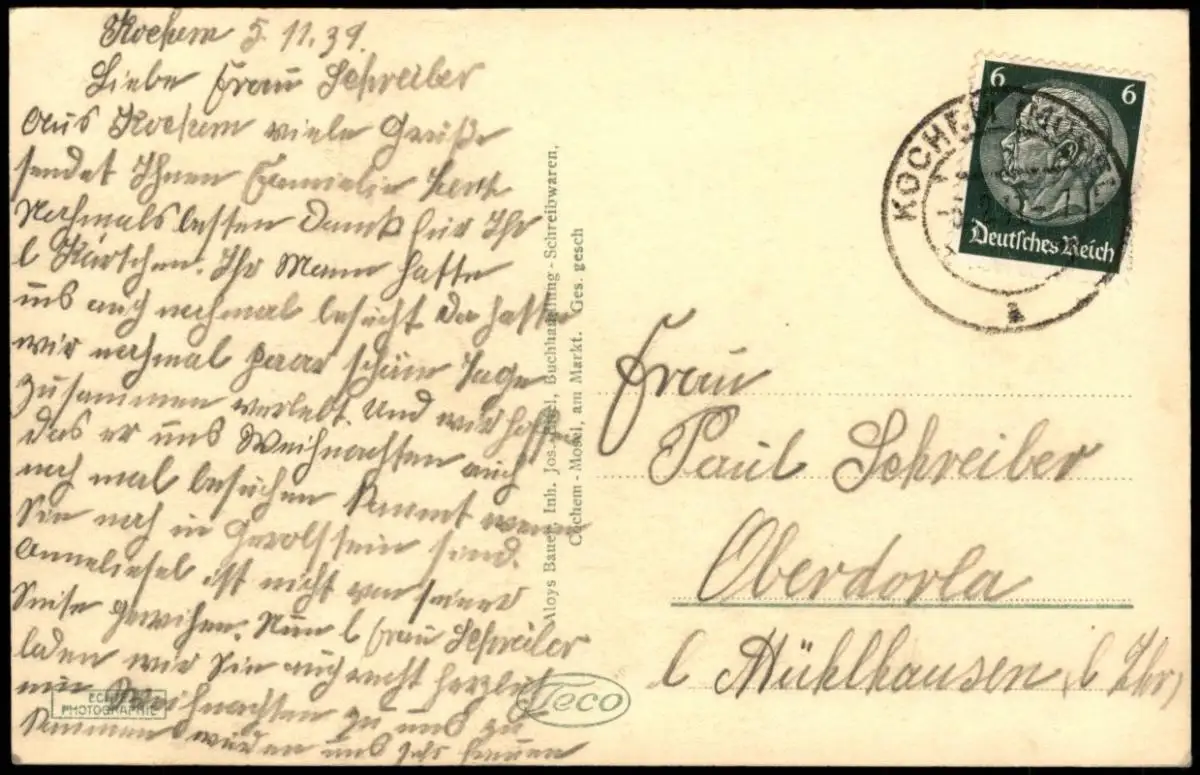 Kochem 5.11.39.
Liebe Frau Schreiber
Aus Kochem viele Grüße
sendet Ihnen Familie
Nochmals besten Dank für Ihr
l Kärtchen. Ihr Mann hatte
uns auch nochmal besucht Da hatte
wir nochmal paar schöne Tage
Zusammen verlebt. Und wir hoffen
das er uns Weihnachten auch
noch mal besuchen kommt wenn
Sie noch in Gerolstein sind.
Anneliesel ist nicht von seiner
Seite gewichen. Nun l Frau Schreiber
laden wir Sie auch recht herzlich
Weihnachten zu uns zu
kommen würden uns sehr freuen
ECHTE PHOTOGRAPHIE
Aloys Bauer, Inh. Jos. Buchhandlung - Schreibwaren,
Cochem - Mosel, am Markt. Ges. gesch
Leco
6 6
Deutsches Reich
KOCHEM (MOSEL)
a
Frau
Paul Schreiber
Oberdorla
b Mühlhausen i Thr